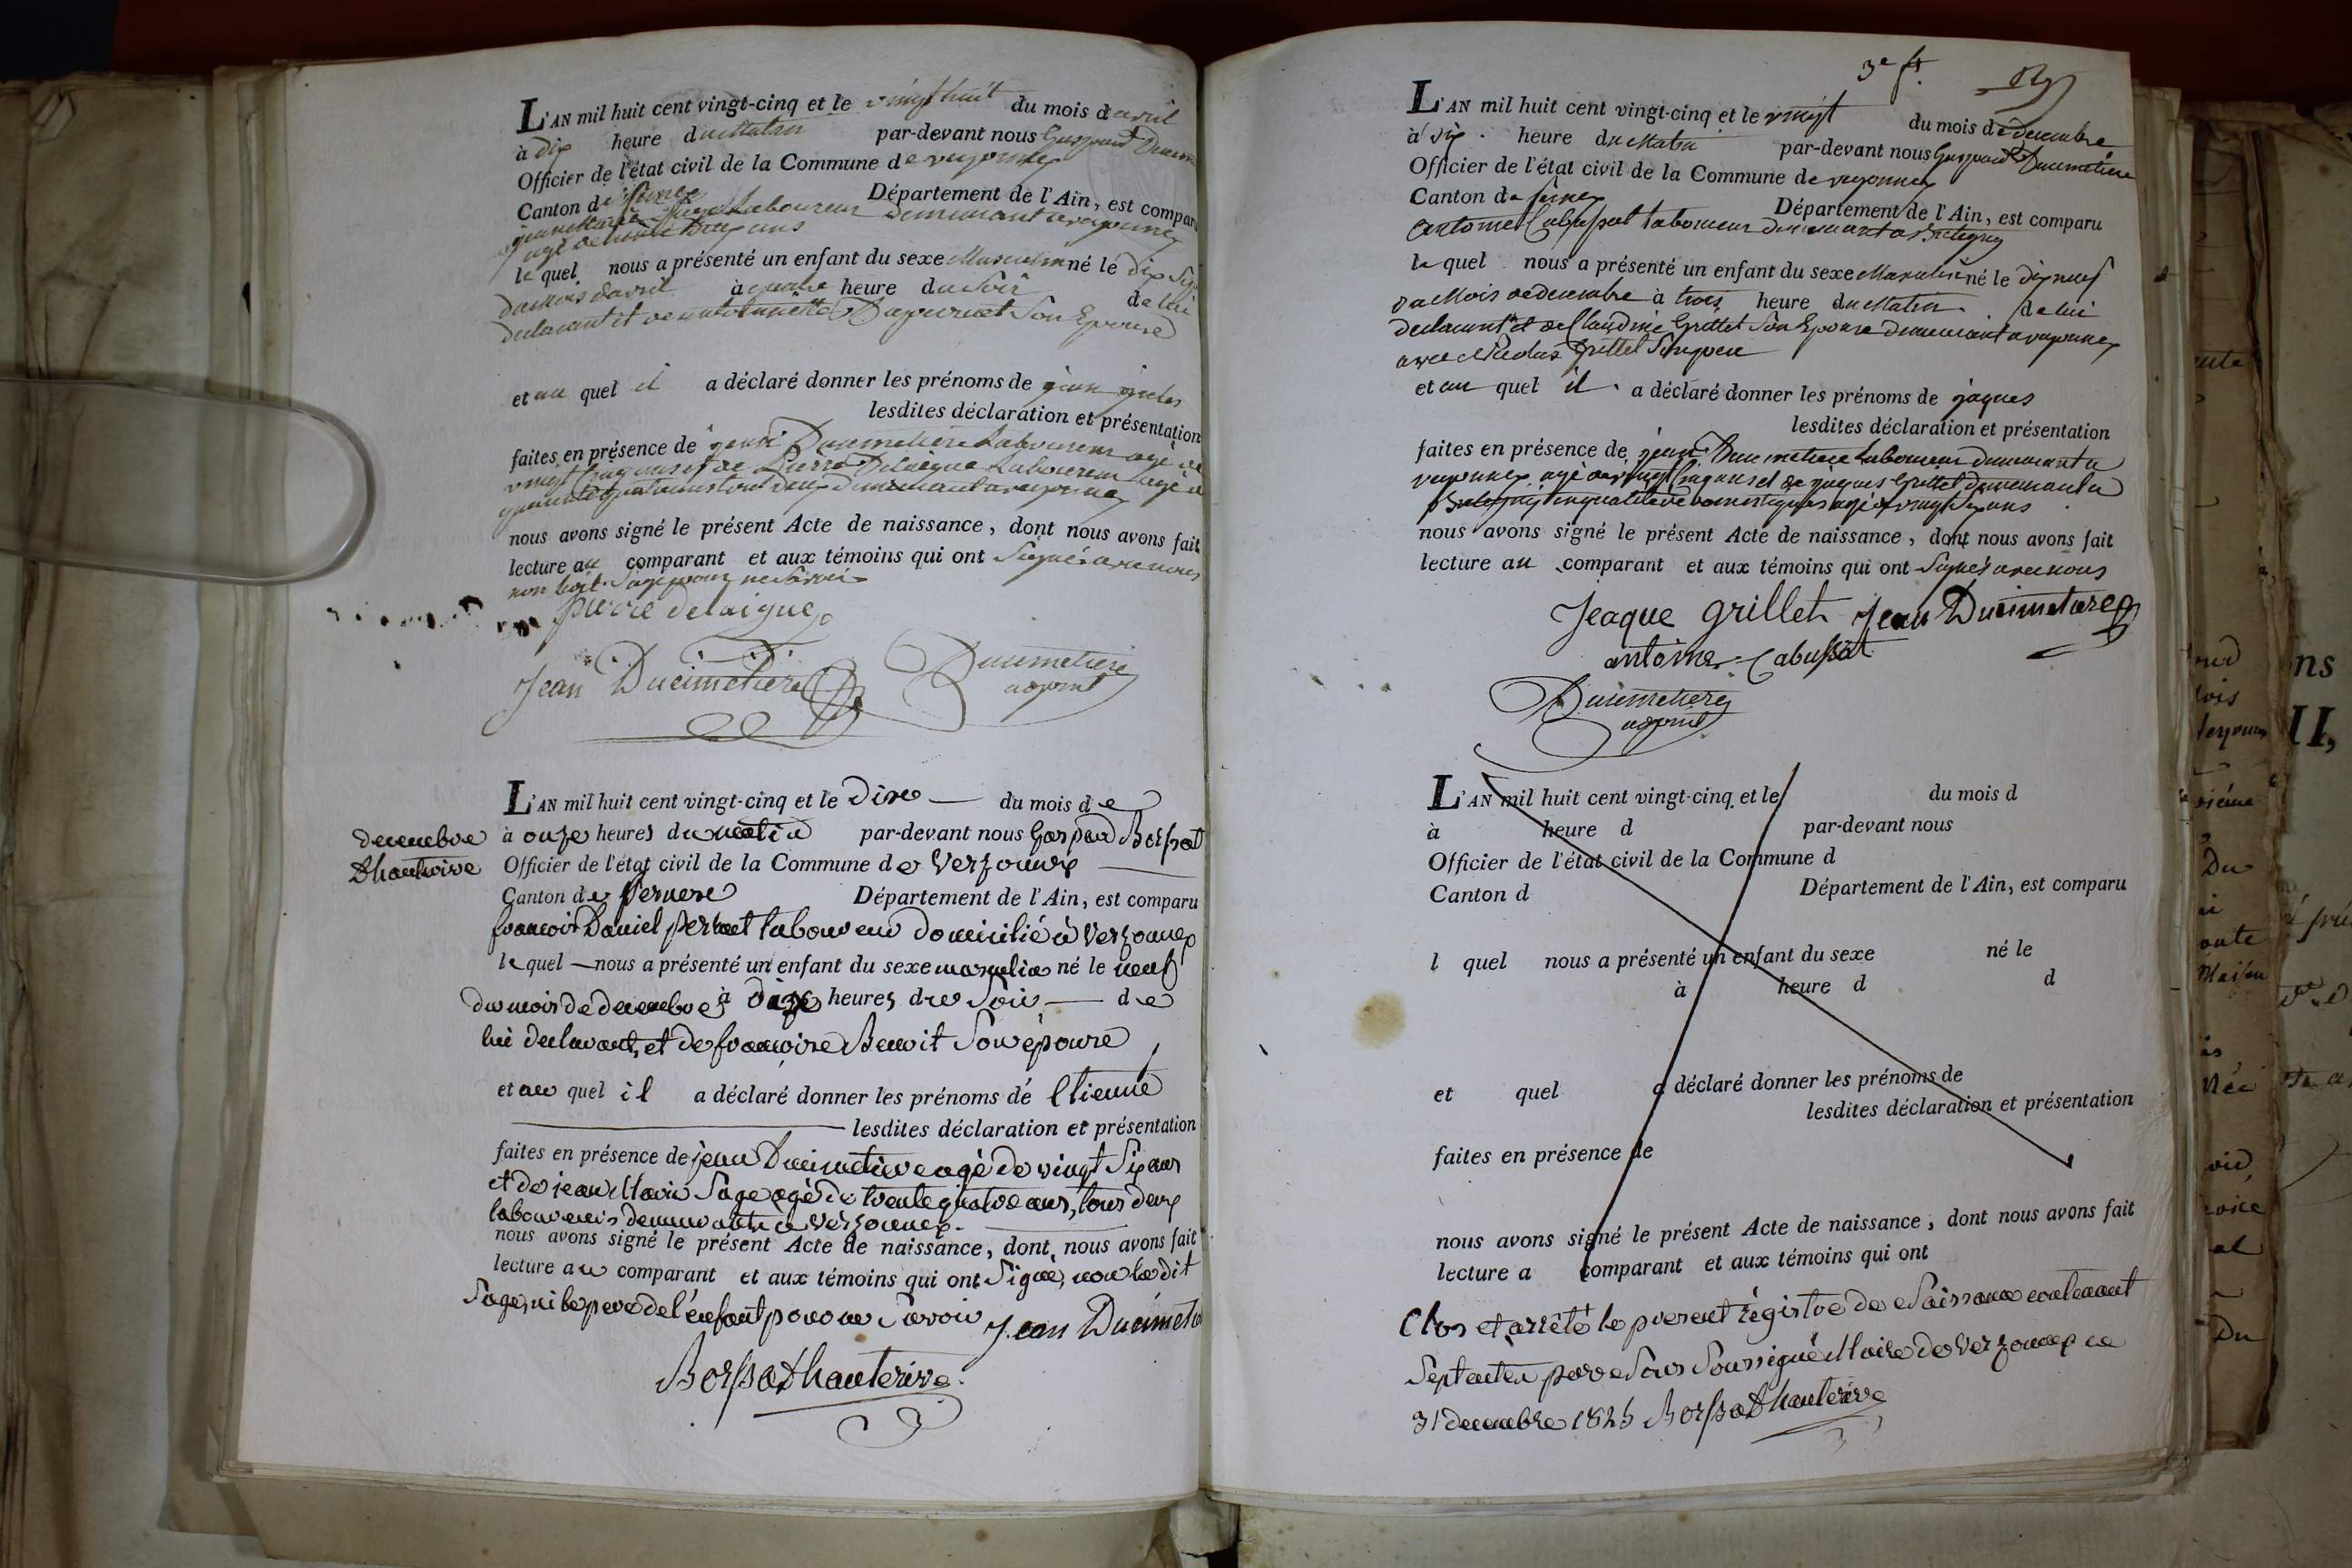 L'AN mil huit cent vingt-cinq et le vingt huit du mois d avril
à dix heure du Matin par-devant nous Gaspard
Officier de l'état civil de la Commune de
Canton de Département de l'Ain, est comparu
Laboureur demeurant a
agé de ans
le quel nous a présenté un enfant du sexe Masculin né le dix
du Mois d'avril à quatre heure du Soir de lui
declarant et de Son Epouse
et au quel il a déclaré donner les prénoms de jean
lesdites déclaration et présentation
faites en présence de jean Ducimetiere Laboureur agé de
vingt cinq ans et de Pierre Delaigue Laboureur agé de
quarante quatre ans tous deux demeurant a
nous avons signé le présent Acte de naissance, dont nous avons fait
lecture au comparant et aux témoins qui ont Signés avec nous
non ledit Sage pour ne Savoir
pierre delaigue
Jean Ducimetiere Ducimetiere
adjoint
decembre
Dhauterive
L'AN mil huit cent vingt-cinq et le Dixe du mois de
à onze heures du matin par-devant nous Gaspard Borssat
Officier de l'état civil de la Commune de Verjonnex
Canton de Département de l'Ain, est comparu
francois Daniel laboureur domicilié à Verjonnex
le quel nous a présenté un enfant du sexe masculin né le neuf
du mois de decembre à onze heures du Soir de
lui declarant, et de francoise Benoit Son épouse
et au quel il a déclaré donner les prénoms de Etienne
lesdites déclaration et présentation
faites en présence de jean Ducimetiere agé de vingt Six ans
et de jean Marie Sage agé de trente quatre ans, tous deux
laboureurs demeurants a Verjonnex
nous avons signé le présent Acte de naissance, dont nous avons fait
lecture au comparant et aux témoins qui ont Signé, non le dit
Sage, ni le pere de l'enfant pour ne Savoir Jean Ducimetie
Borssat Dhauterive
3e ft.
L'AN mil huit cent vingt-cinq et le vingt du mois de decembre
à dix heure du Matin par-devant nous Gaspard Ducimetiere
Officier de l'état civil de la Commune de
Canton de Département de l'Ain, est comparu
antoine Cabussat laboureur demeurant a Bretigny
le quel nous a présenté un enfant du sexe Masculin né le dix neuf
du Mois de decembre à trois heure du Matin de lui
declarant et de Claudine Grillet Son Epouse demeurant a
avec Nicolas Grillet Son pere
et au quel il a déclaré donner les prénoms de jaques
lesdites déclaration et présentation
faites en présence de jean Ducimetiere Laboureur demeurant a
agé de vingt cinq ans et de jaques Grillet demeurant a
Bretigny en qualité de domestiques agé de vingt Six ans
nous avons signé le présent Acte de naissance, dont nous avons fait
lecture au comparant et aux témoins qui ont Signés avec nous
Jeaque Grillet Jean Ducimetiere
antoine Cabussat
Ducimetiere
adjoint
L'AN mil huit cent vingt-cinq et le du mois d
à heure d par-devant nous
Officier de l'état civil de la Commune d
Canton d Département de l'Ain, est comparu
l quel nous a présenté un enfant du sexe né le
à heure d d
et quel a déclaré donner les prénoms de
lesdites déclaration et présentation
faites en présence de
nous avons signé le présent Acte de naissance, dont nous avons fait
lecture a comparant et aux témoins qui ont
Clos et arrêté le present régistre de Naissance contenant
Sept actes par Nous Soussigné Maire de Verjonnex ce
31 decembre 1825 Borssat Dhauterive